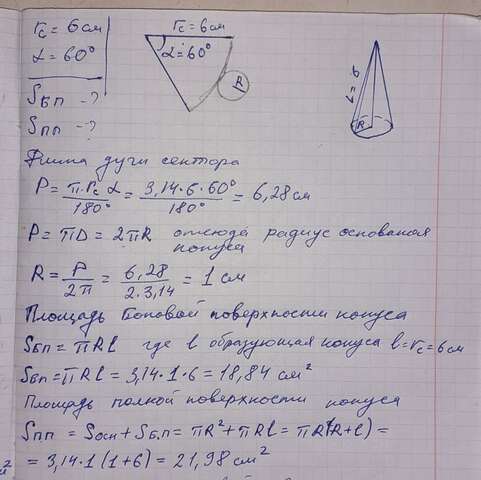 rс = 6 см
α = 60°
Sбп -?
Sпп -?
rс = 6см
α = 60°
R
L = 6
R
Длина дуги сектора
P = π·rс α / 180° = 3,14·6·60° / 180° = 6,28 см
P = πD = 2πR отсюда радиус основания
конуса
R = P / 2π = 6,28 / 2·3,14 = 1 см
Площадь боковой поверхности конуса
Sбп = πRl где l образующая конуса l=rс=6см
Sбп = πRl = 3,14·1·6 = 18,84 см²
Площадь полной поверхности конуса
Sпп = Sосн + Sбп = πR² + πRl = πR(R+l) =
= 3,14·1(1+6) = 21,98 см²